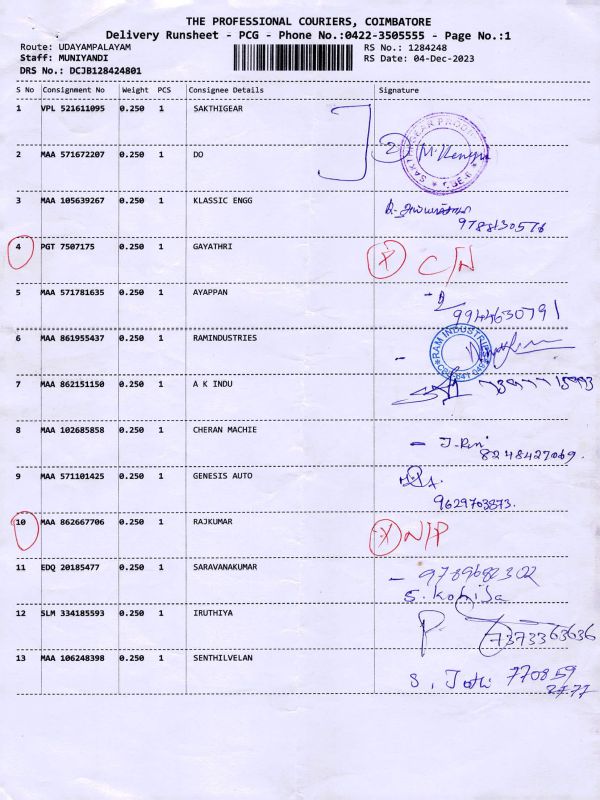 THE PROFESSIONAL COURIERS, COIMBATORE
Delivery Runsheet - PCG - Phone No.:0422-3505555 - Page No.:1
Route: UDAYAMPALAYAM RS No.: 1284248
Staff: MUNIYANDI RS Date: 04-Dec-2023
DRS No.: DCJB128424801
S No Consignment No Weight PCS Consignee Details Signature
1 VPL 521611095 0.250 1 SAKTHIGEAR
2 MAA 571672207 0.250 1 DO 2
3 MAA 105639267 0.250 1 KLASSIC ENGG
9788130576
4 PGT 7507175 0.250 1 GAYATHRI X C/N
5 MAA 571781635 0.250 1 AYAPPAN
9944630791
6 MAA 861955437 0.250 1 RAMINDUSTRIES RAM INDUSTRIES
7 MAA 862151150 0.250 1 A K INDU
8 MAA 102685858 0.250 1 CHERAN MACHIE
8248427069.
9 MAA 571101425 0.250 1 GENESIS AUTO
9629703873.
10 MAA 862667706 0.250 1 RAJKUMAR X N/P
11 EDQ 20185477 0.250 1 SARAVANAKUMAR - 9789682302
12 SLM 334185593 0.250 1 IRUTHIYA
7373363636
13 MAA 106248398 0.250 1 SENTHILVELAN S. Jothi 770859
2777